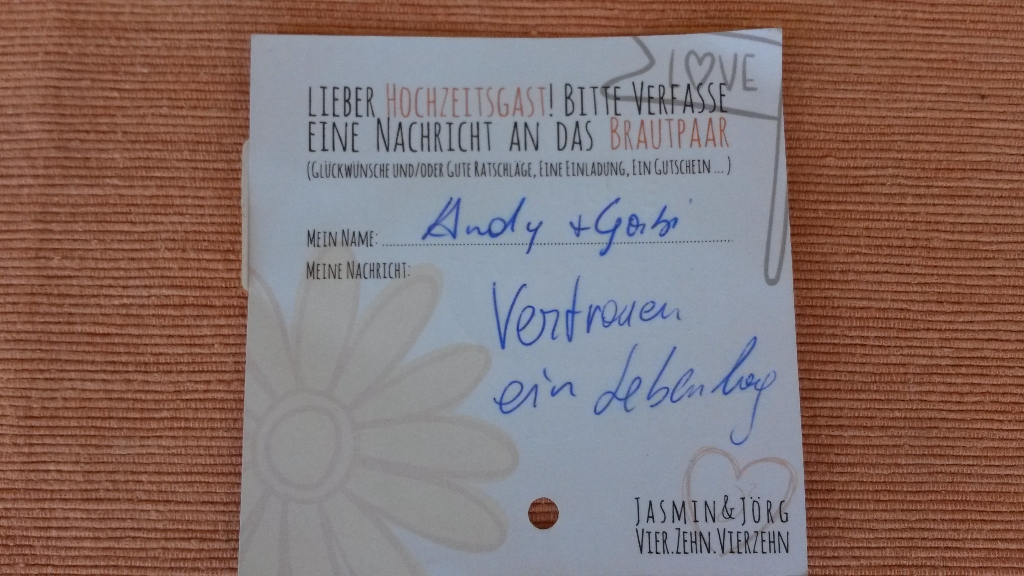 LOVE
LIEBER HOCHZEITSGAST! BITTE VERFASSE
EINE NACHRICHT AN DAS BRAUTPAAR
(GLÜCKWÜNSCHE UND/ODER GUTE RATSCHLÄGE, EINE EINLADUNG, EIN GUTSCHEIN ... )
MEIN NAME: Andy + Gabi
MEINE NACHRICHT:
Vertrauen
ein Leben lang
JASMIN & JÖRG
VIER.ZEHN.VIERZEHN